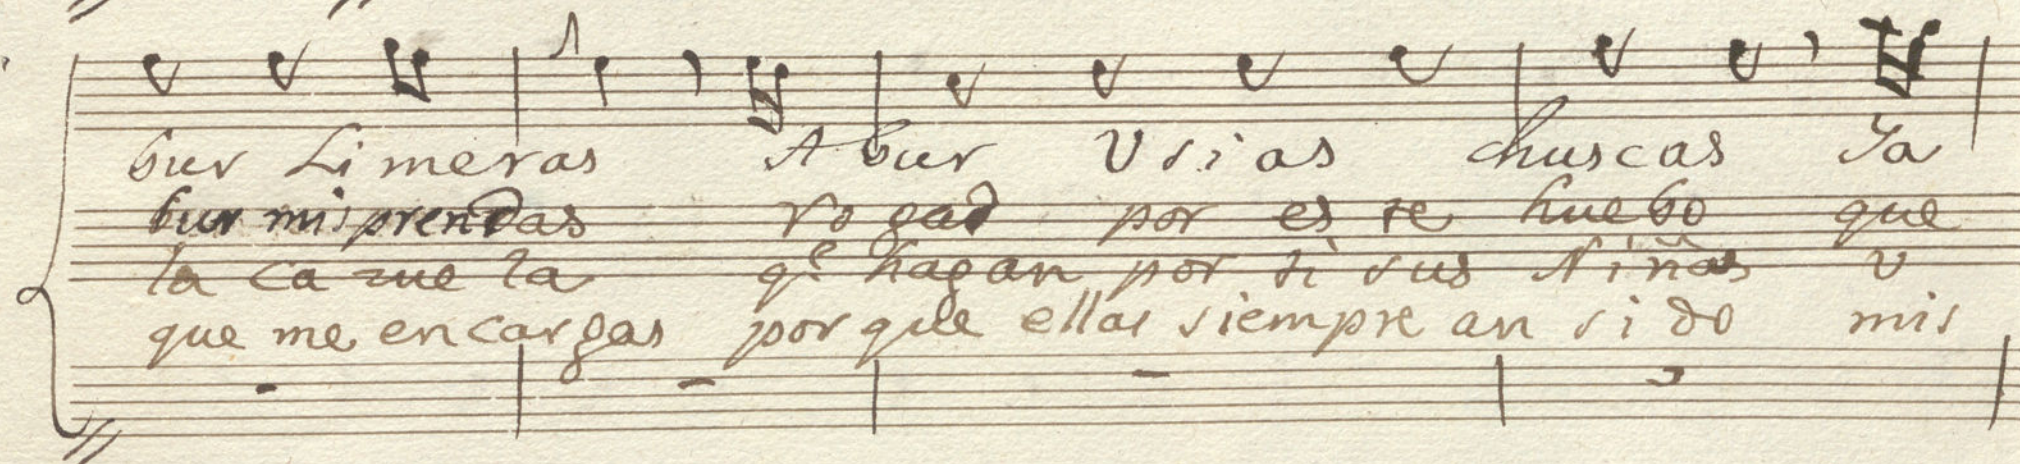 bur Limeras A bur Usias chuscas Ya
bur mis prendas rogad por este huebo que
la cazuela q.e hagan por ti sus Niñas v
que me encargas porque ellas siempre an sido mis